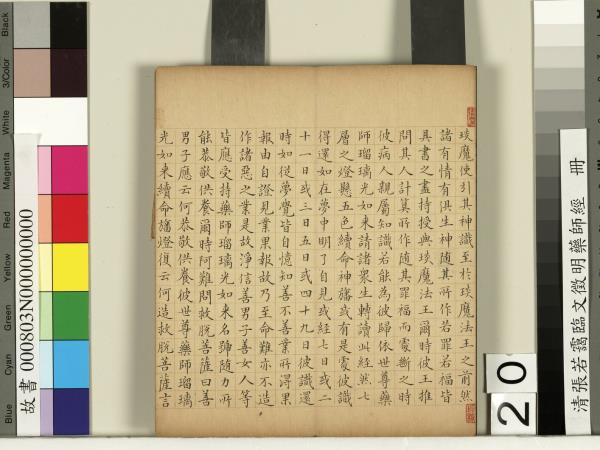 琰魔使引其神識至於琰魔法王之前然
諸有情有俱生神隨其所作若罪若福皆
具書之盡持授與琰魔法王爾時彼王推
問其人計算所作隨其罪福而處斷之時
彼病人親屬知識若能為彼歸依世尊藥
師瑠璃光如來請諸衆生轉讀此經然七
層之燈懸五色續命神旛或有是處彼識
得還如在夢中明了自見或經七日或二
十一日或三日五日或四十九日彼識還
時如從夢覺皆自憶知善不善業所得果
報由自證見業果報故乃至命難亦不造
作諸惡之業是故淨信善男子善女人等
皆應受持藥師瑠璃光如來名號隨力所
能恭敬供養爾時阿難問救脫菩薩曰善
男子應云何恭敬供養彼世尊藥師瑠璃
光如來續命旛燈復云何造救脫菩薩言
清張若靄臨文徵明藥師經 冊
20
故書 000803N000000000
Blue
Cyan
Green
Yellow
Red
Magenta
White
3/Color
Black